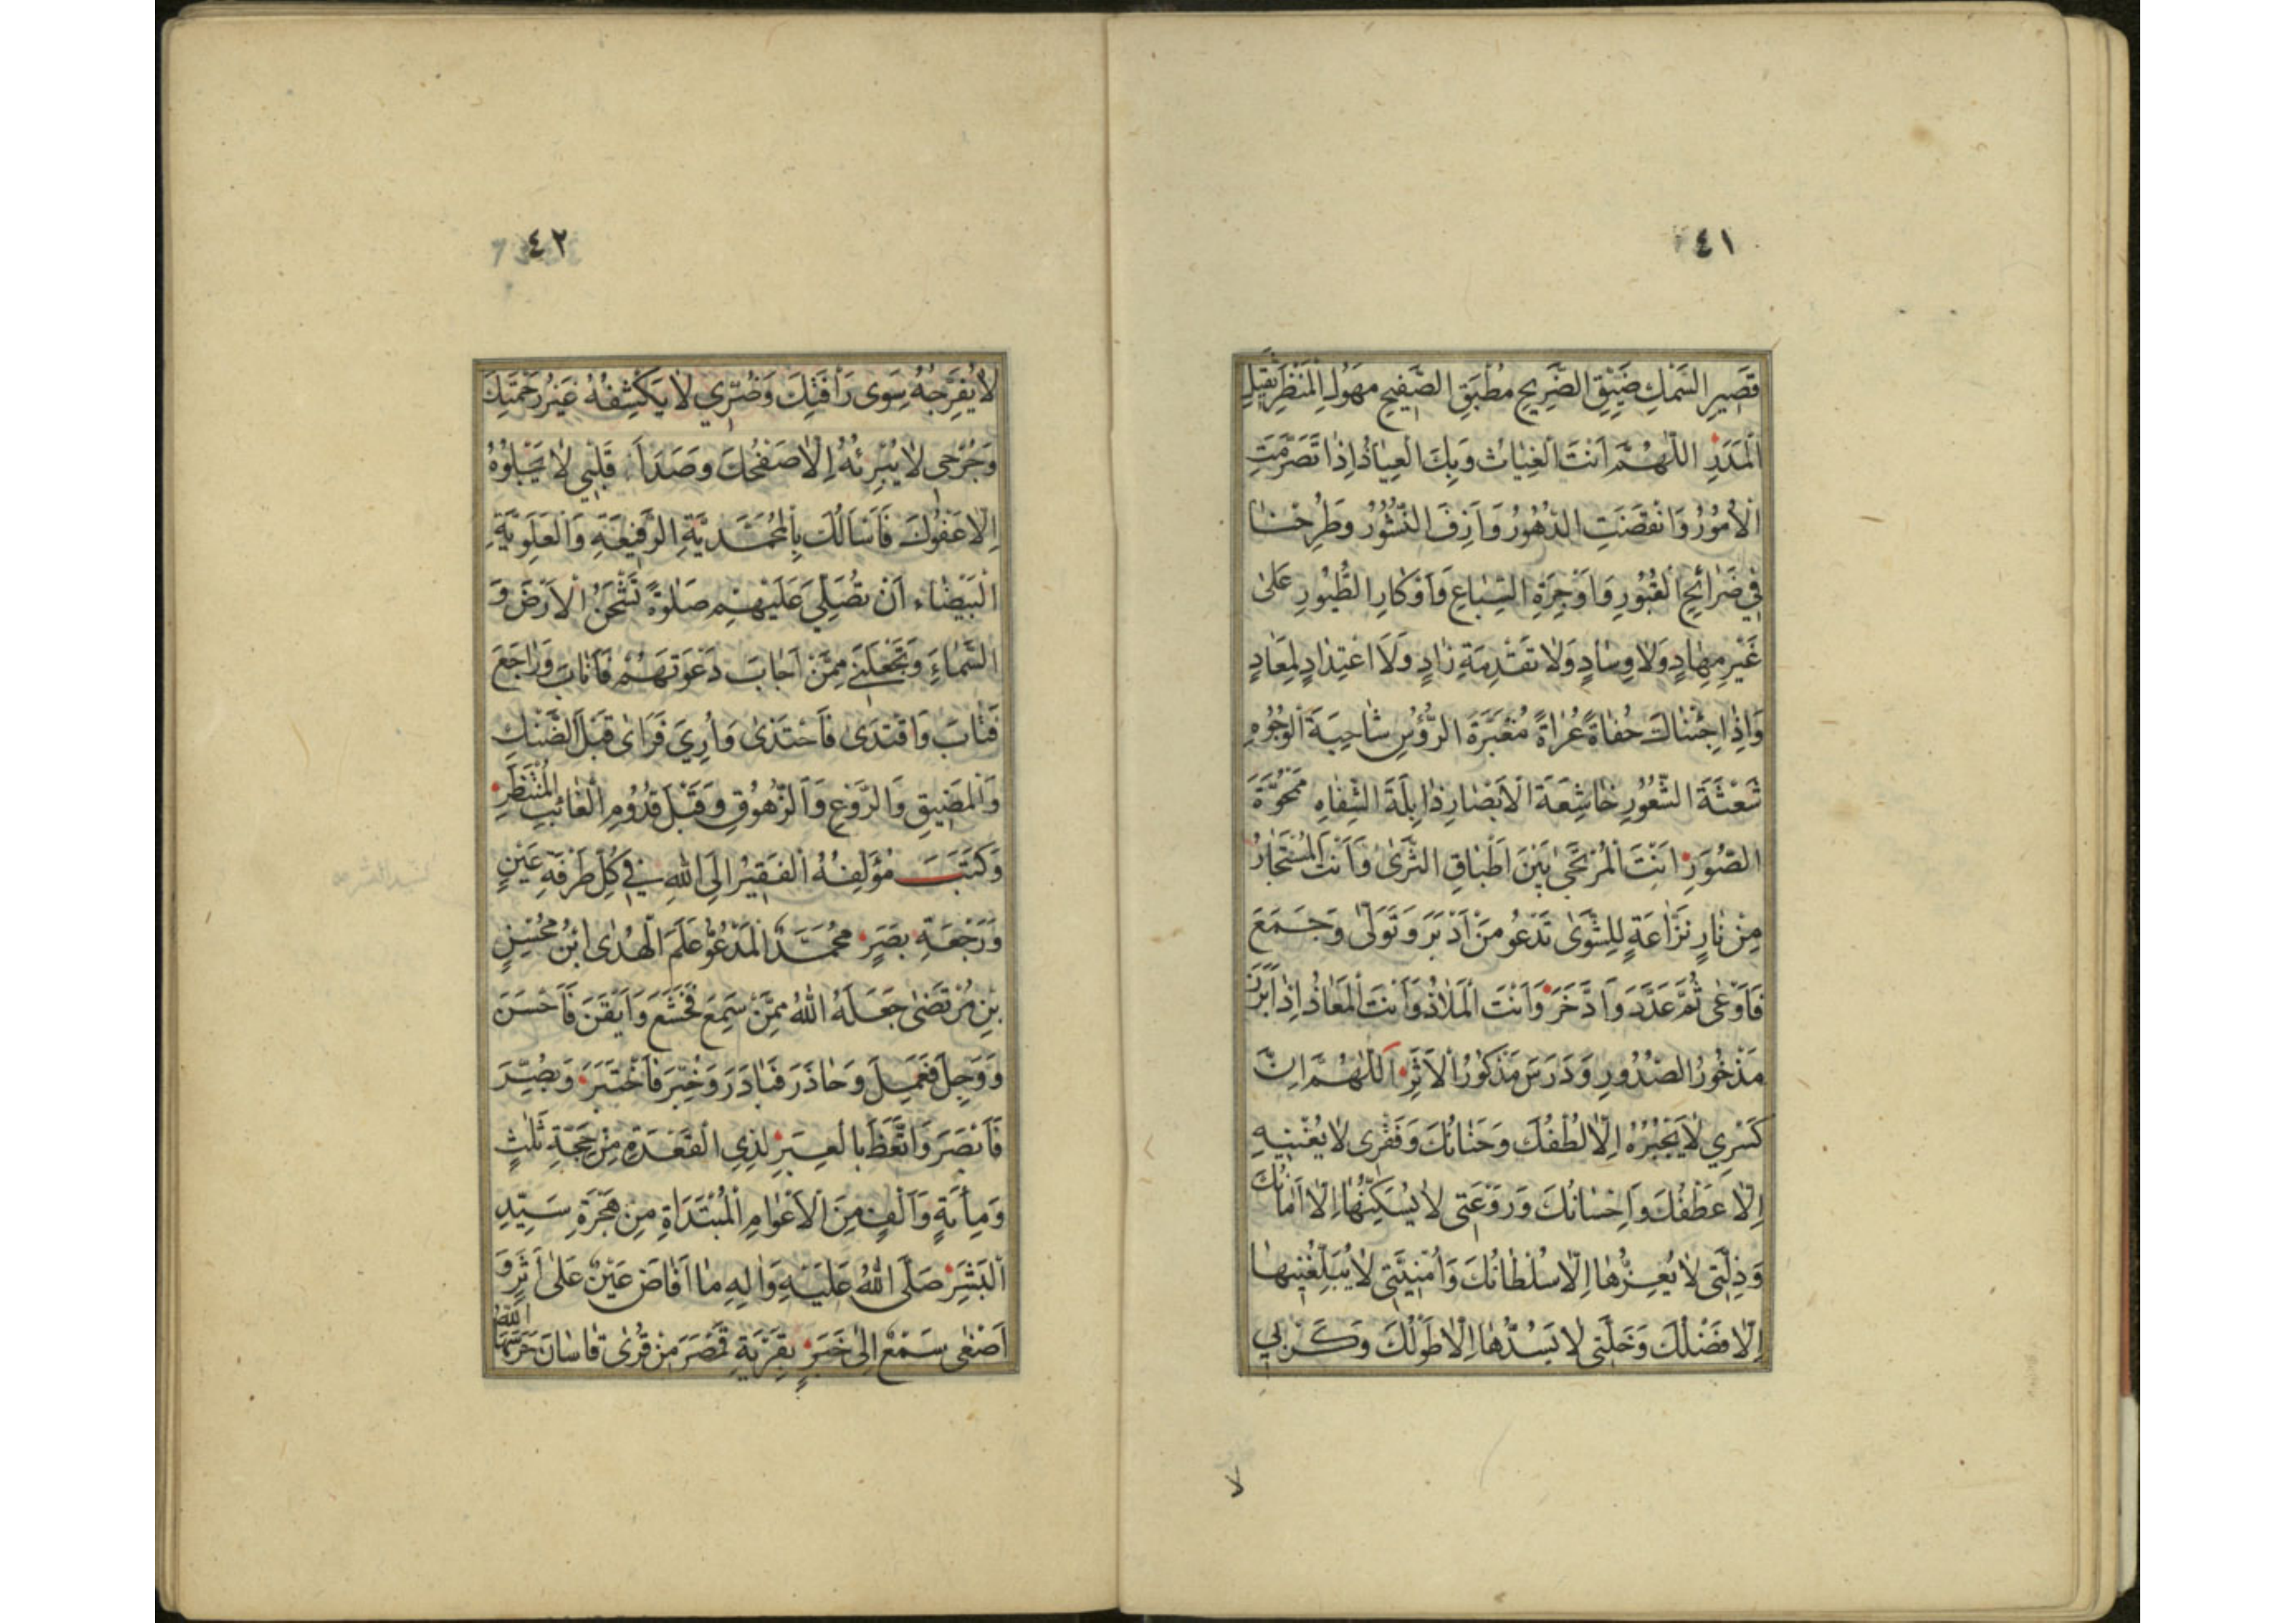 ٤١
قَصِيرِ السَّمْكِ ضَيِّقِ الضَّرِيحِ مُطْبَقِ الصَّفِيحِ مَهُولِ الْمَنْظَرِ ثَقِيلِ
الْمَدَرِ اللّٰهُمَّ اَنْتَ الْغِيٰاثُ وَبِكَ الْعِيٰاذُ اِذٰا تَصَرَّمَتِ
الْاُمُورُ وَانْقَضَتِ الدُّهُورُ وَاَزِفَ النُّشُورُ وَطُرِحْنٰا
فِي ضَرٰائِحِ الْقُبُورِ وَاَوْجِرَةِ السِّبٰاعِ وَاَوْكٰارِ الطُّيُورِ عَلىٰ
غَيْرِ مِهٰادٍ وَلٰا وِسٰادٍ وَلٰا تَقْدِمَةِ زٰادٍ وَلَا اعْتِدٰادٍ لِمَعٰادٍ
وَاِذٰا جِئْنٰاكَ حُفٰاةً عُرٰاةً مُغْبَرَّةَ الرُّؤُسِ شٰاحِبَةَ الْوُجُوهِ
شَعْثَةَ الشُّعُورِ خٰاشِعَةَ الْاَبْصٰارِ ذٰابِلَةَ الشِّفٰاهِ مَمْحُوَّةَ
الصُّوَرِ اَنْتَ الْمُرْتَجىٰ بَيْنَ اَطْبٰاقِ الثَّرىٰ وَاَنْتَ الْمُسْتَجٰارُ
مِنْ نٰارٍ نَزّٰاعَةٍ لِلشَّوىٰ تَدْعُو مَنْ اَدْبَرَ وَتَوَلّىٰ وَجَمَعَ
فَاَوْعىٰ ثُمَّ عَدَّدَ وَادَّخَرَ وَاَنْتَ الْمَلٰاذُ وَاَنْتَ الْمَعٰاذُ اِذٰا بَرَزَ
مَذْخُورُ الصُّدُورِ وَدَرَسَ مَذْكُورُ الْاَثَرِ اَللّٰهُمَّ اِنَّ
كَسْرِي لٰا يَجْبُرُهُ اِلّٰا لُطْفُكَ وَحَنٰانُكَ وَفَقْرِي لٰا يُغْنِيهِ
اِلّٰا عَطْفُكَ وَاِحْسٰانُكَ وَرَوْعَتِي لٰا يُسَكِّنُهٰا اِلّٰا اَمٰانُكَ
وَذِلَّتِي لٰا يُعِزُّهٰا اِلّٰا سُلْطٰانُكَ وَاُمْنِيَّتِي لٰا يُبَلِّغُنِيهٰا
اِلّٰا فَضْلُكَ وَخَلَّتِي لٰا يَسُدُّهٰا اِلّٰا طَوْلُكَ وَكَرْبِي
لا
٤٢
لٰا يُفَرِّجُهُ سِوىٰ رَأْفَتِكَ وَضُرِّي لٰا يَكْشِفُهُ غَيْرُ رَحْمَتِكَ
وَجُرْحِي لٰا يُبْرِئُهُ اِلّٰا صَفْحُكَ وَصَدَاَ قَلْبِي لٰا يَجْلُوهُ
اِلّٰا عَفْوُكَ فَاَسْاَلُكَ بِالْمُحَمَّدِيَّةِ الرَّفِيعَةِ وَالْعَلَوِيَّةِ
الْبَيْضٰاءِ اَنْ تُصَلِّيَ عَلَيْهِمْ صَلٰوةً تَشْحَنُ الْاَرْضَ وَ
السَّمٰاءَ وَتَجْعَلَنِي مِمَّنْ اَجٰابَ دَعْوَتَهُمْ فَاَنٰابَ وَرٰاجَعَ
فَتٰابَ وَاقْتَدىٰ فَاحْتَذىٰ وَاُرِيَ فَرَاىٰ قَبْلَ الضَّنْكِ
وَالْمَضِيقِ وَالرَّوْعِ وَالزُّهُوقِ وَقَبْلَ قُدُومِ الْغٰائِبِ الْمُنْتَظَرِ
وَكَتَبَ مُؤَلِّفُهُ الْفَقِيرُ اِلَى اللّٰهِ فِي كُلِّ طَرْفَةِ عَيْنٍ
وَرَجْعَةِ بَصَرٍ مُحَمَّدٌ الْمَدْعُوُّ عَلَمَ الْهُدىٰ ابْنُ مُحْسِنِ
بْنِ مُرْتَضىٰ جَعَلَهُ اللّٰهُ مِمَّنْ سَمِعَ فَخَشَعَ وَاَيْقَنَ فَاَحْسَنَ
وَوَجِلَ فَعَمِلَ وَحٰاذَرَ فَبٰادَرَ وَخُبِّرَ فَاخْتَبَرَ وَبُصِّرَ
فَاَبْصَرَ وَاتَّعَظَ بِالْعِبَرِ لِذِي الْقَعْدَةِ مِنْ حَجَّةِ ثَلٰثٍ
وَمِاَئَةٍ وَاَلْفٍ مِنَ الْاَعْوٰامِ الْمُبْتَدَاَةِ مِنْ هِجْرَةِ سَيِّدِ
الْبَشَرِ صَلَّى اللّٰهُ عَلَيْهِ وَاٰلِهِ مٰا اَفٰاضَ عَيْنٌ عَلىٰ اَثَرٍ وَ
اَصْغىٰ سَمْعٌ اِلىٰ خَبَرٍ بِقَرْيَةِ قَمْصَرَ مِنْ قُرىٰ قٰاسٰانَ حَرَسَهَا اللّٰهُ